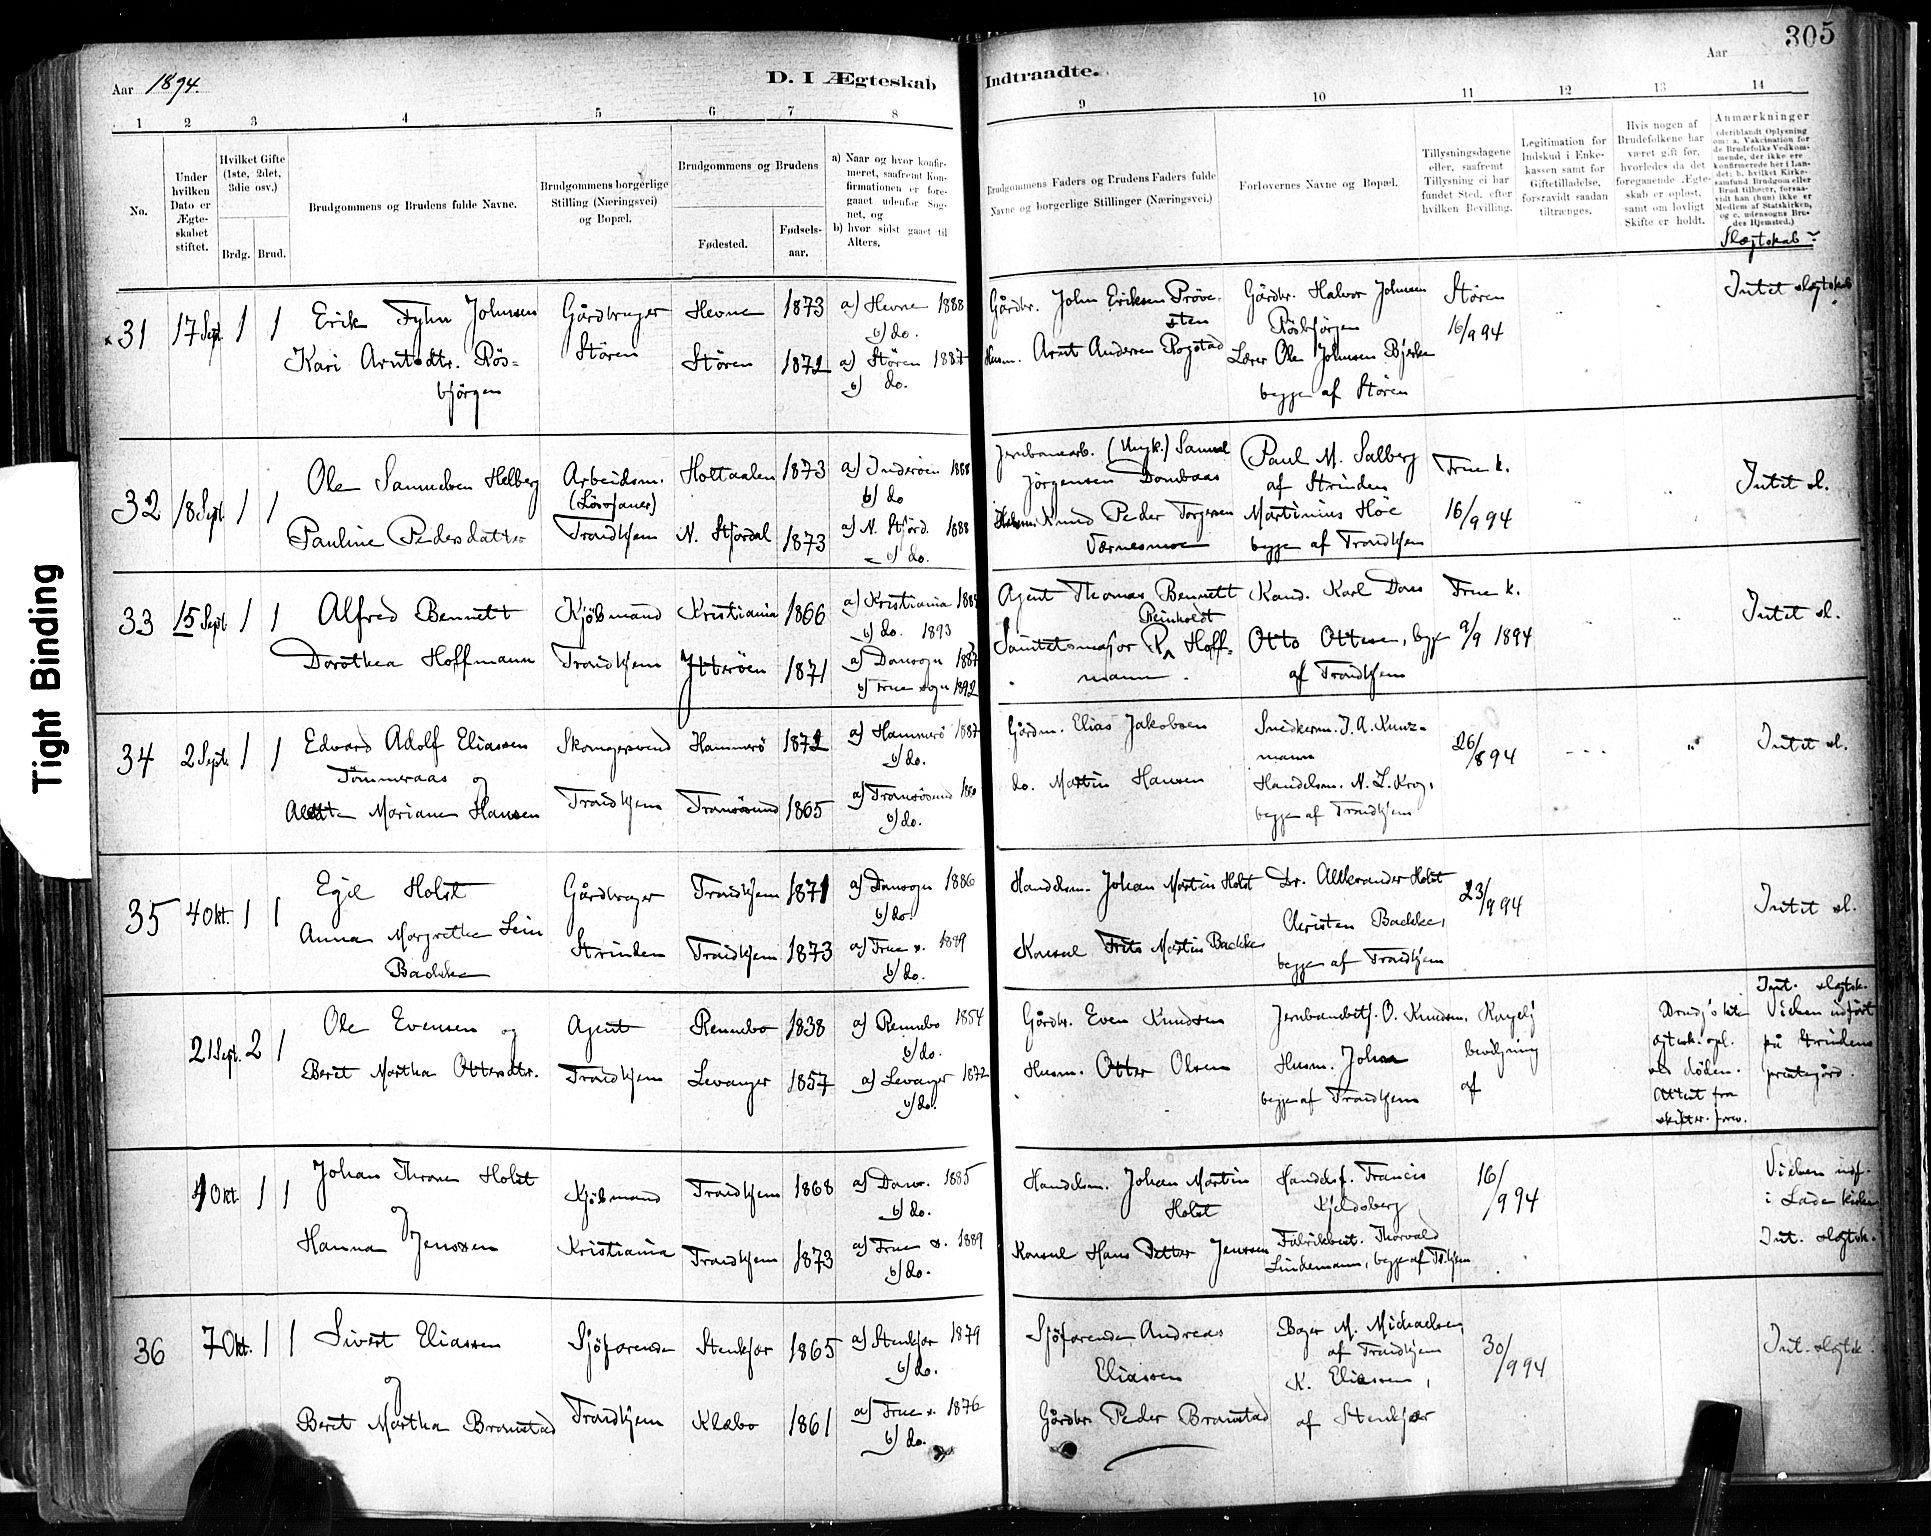 305
Aar 1894.
D. I Ægteskab Indtraadte.
Aar
1 2 3 4 5 6 7 8 9 10 11 12 13 14
No.
Under hvilken Dato er Ægteskabet stiftet.
Hvilket Gifte (1ste, 2det, 3die osv.)
Brdg. Brud.
Brudgommens og Brudens fulde Navne.
Brudgommens borgerlige Stilling (Næringsvei) og Bopæl.
Brudgommens og Brudens
Fødested.
Fødselsaar.
a) Naar og hvor konfirmeret, saafremt Konfirmationen er foregaaet udenfor Sognet, og
b) hvor sidst gaaet til Alters.
Brudgommens Faders og Brudens Faders fulde Navne og borgerlige Stillinger (Næringsvei.)
Forlovernes Navne og Bopæl.
Tillysningsdagene eller, saafremt Tillysning ei har fundet Sted, efter hvilken Bevilling.
Legitimation for Indskud i Enkekassen samt for Giftetilladelse, forsavidt saadan tiltrænges.
Hvis nogen af Brudefolkene har været gift før, hvorledes da det foregaaende Ægteskab er opløst, samt om lovligt Skifte er holdt.
Anmærkninger
(deriblandt Oplysning om: a. Vakcination for de Brudefolks Vedkommende, der ikke ere konfirmerede her i Landet; b. hvilket Kirkesamfund Brudgom eller Brud tilhører, forsaavidt han (hun) ikke er Medlem af Statskirken, og c. udensogns Brudes Hjemsted.)
Slægtskab?
31 17 Sept 1 1
Erik Fyhn Johnsen
Gårdbruger
Hevne 1873
a) Hevne 1888
b) do.
Kari Arntsdtr. Rös-
björgen
Stören
Stören 1872
a) Stören 1887
b) do.
Gårdbr. John Eriksen Pröve-
sten
Husm. Arnt Andersen Rogstad
Gårdbr. Halvor Johnsen
Rösbjörgen
Lærer Ole Johnsen Bjerke
begge af Stören
Stören
16/9 94
Intet slægtskab
32 18 Sept 1 1
Ole Samuelsen Helberg
Arbeidsm.
Holtaalen 1873
a) Inderöen 1888
b) do
Pauline Pedersdatter
Trondhjem
N. Stjördal 1873
a) N. Stjörd. 1888
b) do.
Jernbanearb. Samuel
Jörgensen Dombaas
Peder Torgersen
Værnesmoe
Paul M. Salberg
af Strinden
Martinius Höe
begge af Trondhjem
Frue k.
16/9 94
Intet sl.
33 15 Sept 1 1
Alfred Bennett
Kjöbmand
Kristiania 1866
a) Kristiania
b) do. 1893
Dorothea Hoffmann
Trondhjem
Ytteröen 1871
a) Domsogn 1887
b) Frue sogn 1892
Agent Thomas Bennett
Reinholdt
Sanitetsmajor P. Hoff-
mann
Kand. Karl Dons
Otto Ottesen, begge
af Trondhjem
Frue k.
9/9 1894
Intet sl.
34 2 Sept. 1 1
Edvard Adolf Eliassen
Tömmeraas og
Skomagersvend
Hammerö 1872
a) Hammerö 1887
b) do.
Mariane Hansen
Trondhjem
Tranösund 1865
a) Tranösund 1880
b) do.
Gårdm. Elias Jakobsen
do. Martin Hansen
Snedkerm. J. A. Kunz-
mann
Handelsm. N. L. Krog,
begge af Trondhjem
26/8 94
Intet sl.
35 4 Okt. 1 1
Egil Holst
Gårdbruger
Trondhjem 1871
a) Domsogn 1886
b) do.
Anna Margrethe Lein
Bachke
Strinden
Trondhjem 1873
a) Frue s. 1889
b) do.
Handelsm. Johan Martin Holst
Konsul Frits Martin Bachke
Dr. Alexander Holst
Christen Bachke,
begge af Trondhjem
23/9 94
Intet sl.
21 Sept. 2 1
Ole Evensen og
Agent
Rennebo 1838
a) Rennebo 1854
b) do.
Beret Martha Ottersdtr.
Trondhjem
Levanger 1857
a) Levanger 1872
b) do.
Gårdbr. Even Knudsen
Husm. Otter Olsen
Jernbanebetj. O. Knudsen,
Husm. Johan
begge af Trondhjem
Kongelig
bevilgning
af
ægtesk. opl.
ved döden.
Attest fra
skifter. forev.
Int. slægtsk.
Vielsen udfört
på Strindens
præstegård.
4 Okt. 1 1
Johan Thrane Holst
og
Kjöbmand
Trondhjem 1868
a) Doms. 1885
b) do.
Hanna Jenssen
Kristiania
Trondhjem 1873
a) Frue s. 1889
b) do.
Handelsm. Johan Martin
Holst
Konsul Hans Petter Jenssen
Handelsf. Francis
Kjeldsberg
Fabrikbest. Thorvald
Lindemann, begge af T.hjem
16/9 94
Vielsen udf.
i Lade kirke
Int. slægtsk.
36 7 Okt. 1 1
Sivert Eliassen
og
Sjöfarende
Stenkjær 1865
a) Stenkjær 1879
b) do.
Beret Martha Bromstad
Trondhjem
Klæbo 1861
a) Frue s. 1876
b) do.
Sjöfarende Andreas
Eliassen
Gårdbr. Peder Bromstad
Bager M. Michaelsen
af Trondhjem
K. Eliassen,
af Stenkjær
30/9 94
Int. slægtsk.
Tight Binding